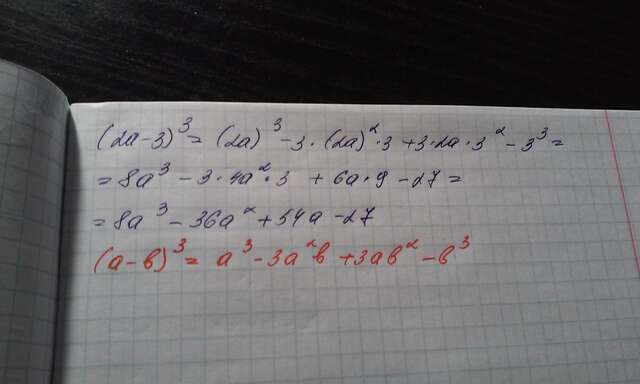 (2a-3)³ = (2a)³ - 3·(2a)²·3 + 3·2a·3² - 3³ =
= 8a³ - 3·4a²·3 + 6a·9 - 27 =
= 8a³ - 36a² + 54a - 27
(a-b)³ = a³ - 3a²b + 3ab² - b³